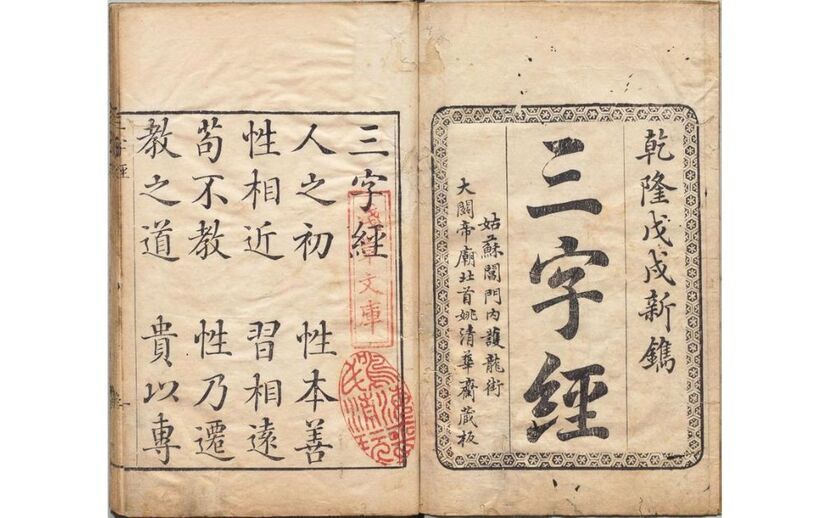 乾隆戊戌新鐫
三字經
姑蘇閶門内護龍街
大關帝廟北首姚清華齋藏板
三字經
人之初 性本善
性相近 習相遠
苟不教 性乃遷
教之道 貴以專
文庫